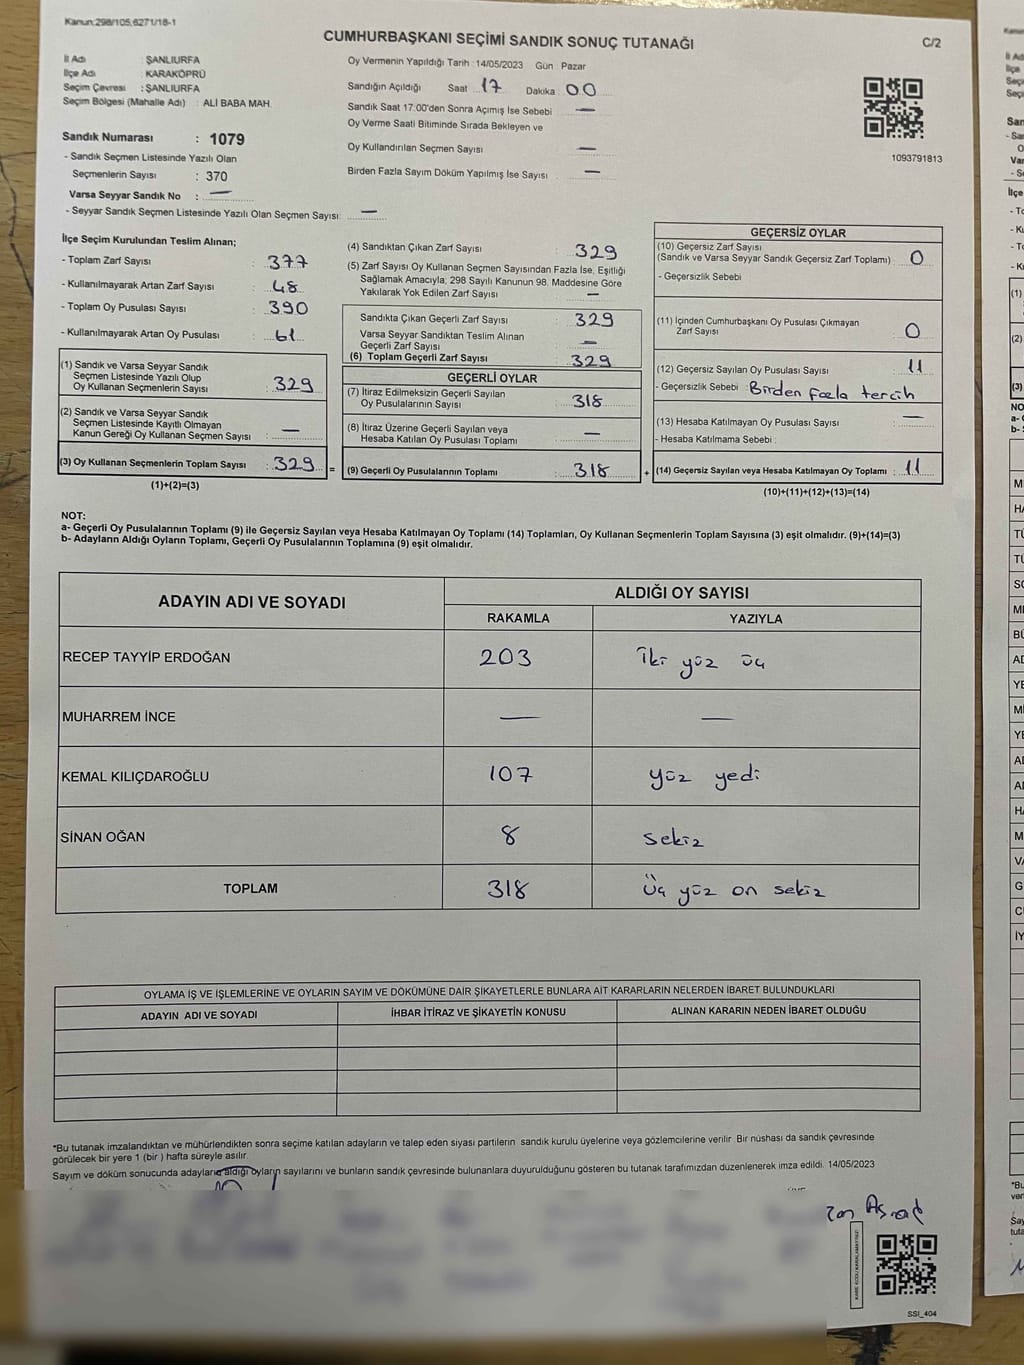 Kanun:298/105,6271/18-1
CUMHURBAŞKANI SEÇİMİ SANDIK SONUÇ TUTANAĞI
C/2
İl Adı : ŞANLIURFA
İlçe Adı : KARAKÖPRÜ
Seçim Çevresi : ŞANLIURFA
Seçim Bölgesi (Mahalle Adı) : ALİ BABA MAH.
Oy Vermenin Yapıldığı Tarih : 14/05/2023 Gün : Pazar
Sandığın Açıldığı Saat 17 Dakika : 00
Sandık Saat 17:00'den Sonra Açımış İse Sebebi —
Oy Verme Saati Bitiminde Sırada Bekleyen ve
Oy Kullandırılan Seçmen Sayısı —
Birden Fazla Sayım Döküm Yapılmış İse Sayısı —
1093791813
Sandık Numarası : 1079
- Sandık Seçmen Listesinde Yazılı Olan
Seçmenlerin Sayısı : 370
Varsa Seyyar Sandık No : —
- Seyyar Sandık Seçmen Listesinde Yazılı Olan Seçmen Sayısı: —
İlçe Seçim Kurulundan Teslim Alınan;
- Toplam Zarf Sayısı : 377
- Kullanılmayarak Artan Zarf Sayısı : 48
- Toplam Oy Pusulası Sayısı : 390
- Kullanılmayarak Artan Oy Pusulası : 61
(1) Sandık ve Varsa Seyyar Sandık
Seçmen Listesinde Yazılı Olup
Oy Kullanan Seçmenlerin Sayısı : 329
(2) Sandık ve Varsa Seyyar Sandık
Seçmen Listesinde Kayıtlı Olmayan
Kanun Gereği Oy Kullanan Seçmen Sayısı : —
(3) Oy Kullanan Seçmenlerin Toplam Sayısı : 329 =
(1)+(2)=(3)
(4) Sandıktan Çıkan Zarf Sayısı : 329
(5) Zarf Sayısı Oy Kullanan Seçmen Sayısından Fazla İse, Eşitliği
Sağlamak Amacıyla, 298 Sayılı Kanunun 98. Maddesine Göre
Yakılarak Yok Edilen Zarf Sayısı : —
Sandıkta Çıkan Geçerli Zarf Sayısı : 329
Varsa Seyyar Sandıktan Teslim Alınan
Geçerli Zarf Sayısı : —
(6) Toplam Geçerli Zarf Sayısı : 329
GEÇERLİ OYLAR
(7) İtiraz Edilmeksizin Geçerli Sayılan
Oy Pusulalarının Sayısı : 318
(8) İtiraz Üzerine Geçerli Sayılan veya
Hesaba Katılan Oy Pusulası Toplamı : —
(9) Geçerli Oy Pusulalarının Toplamı : 318 +
GEÇERSİZ OYLAR
(10) Geçersiz Zarf Sayısı
(Sandık ve Varsa Seyyar Sandık Geçersiz Zarf Toplamı) : 0
- Geçersizlik Sebebi
(11) İçinden Cumhurbaşkanı Oy Pusulası Çıkmayan
Zarf Sayısı 0
(12) Geçersiz Sayılan Oy Pusulası Sayısı : 11
- Geçersizlik Sebebi : Birden fazla tercih
(13) Hesaba Katılmayan Oy Pusulası Sayısı : —
- Hesaba Katılmama Sebebi :
(14) Geçersiz Sayılan veya Hesaba Katılmayan Oy Toplamı : 11
(10)+(11)+(12)+(13)=(14)
NOT:
a- Geçerli Oy Pusulalarının Toplamı (9) ile Geçersiz Sayılan veya Hesaba Katılmayan Oy Toplamı (14) Toplamları, Oy Kullanan Seçmenlerin Toplam Sayısına (3) eşit olmalıdır. (9)+(14)=(3)
b- Adayların Aldığı Oyların Toplamı, Geçerli Oy Pusulalarının Toplamına (9) eşit olmalıdır.
ADAYIN ADI VE SOYADI
ALDIĞI OY SAYISI
RAKAMLA YAZIYLA
RECEP TAYYİP ERDOĞAN 203 iki yüz üç
MUHARREM İNCE — —
KEMAL KILIÇDAROĞLU 107 yüz yedi
SİNAN OĞAN 8 sekiz
TOPLAM 318 Üç yüz on sekiz
OYLAMA İŞ VE İŞLEMLERİNE VE OYLARIN SAYIM VE DÖKÜMÜNE DAİR ŞİKAYETLERLE BUNLARA AİT KARARLARIN NELERDEN İBARET BULUNDUKLARI
ADAYIN ADI VE SOYADI İHBAR İTİRAZ VE ŞİKAYETİN KONUSU ALINAN KARARIN NEDEN İBARET OLDUĞU
*Bu tutanak imzalandıktan ve mühürlendikten sonra seçime katılan adayların ve talep eden siyasi partilerin sandık kurulu üyelerine veya gözlemcilerine verilir Bir nüshası da sandık çevresinde
görülecek bir yere 1 (bir ) hafta süreyle asılır.
Sayım ve döküm sonucunda adayların aldığı oyların sayılarını ve bunların sandık çevresinde bulunanlara duyurulduğunu gösteren bu tutanak tarafımızdan düzenlenerek imza edildi. 14/05/2023
SSI_404